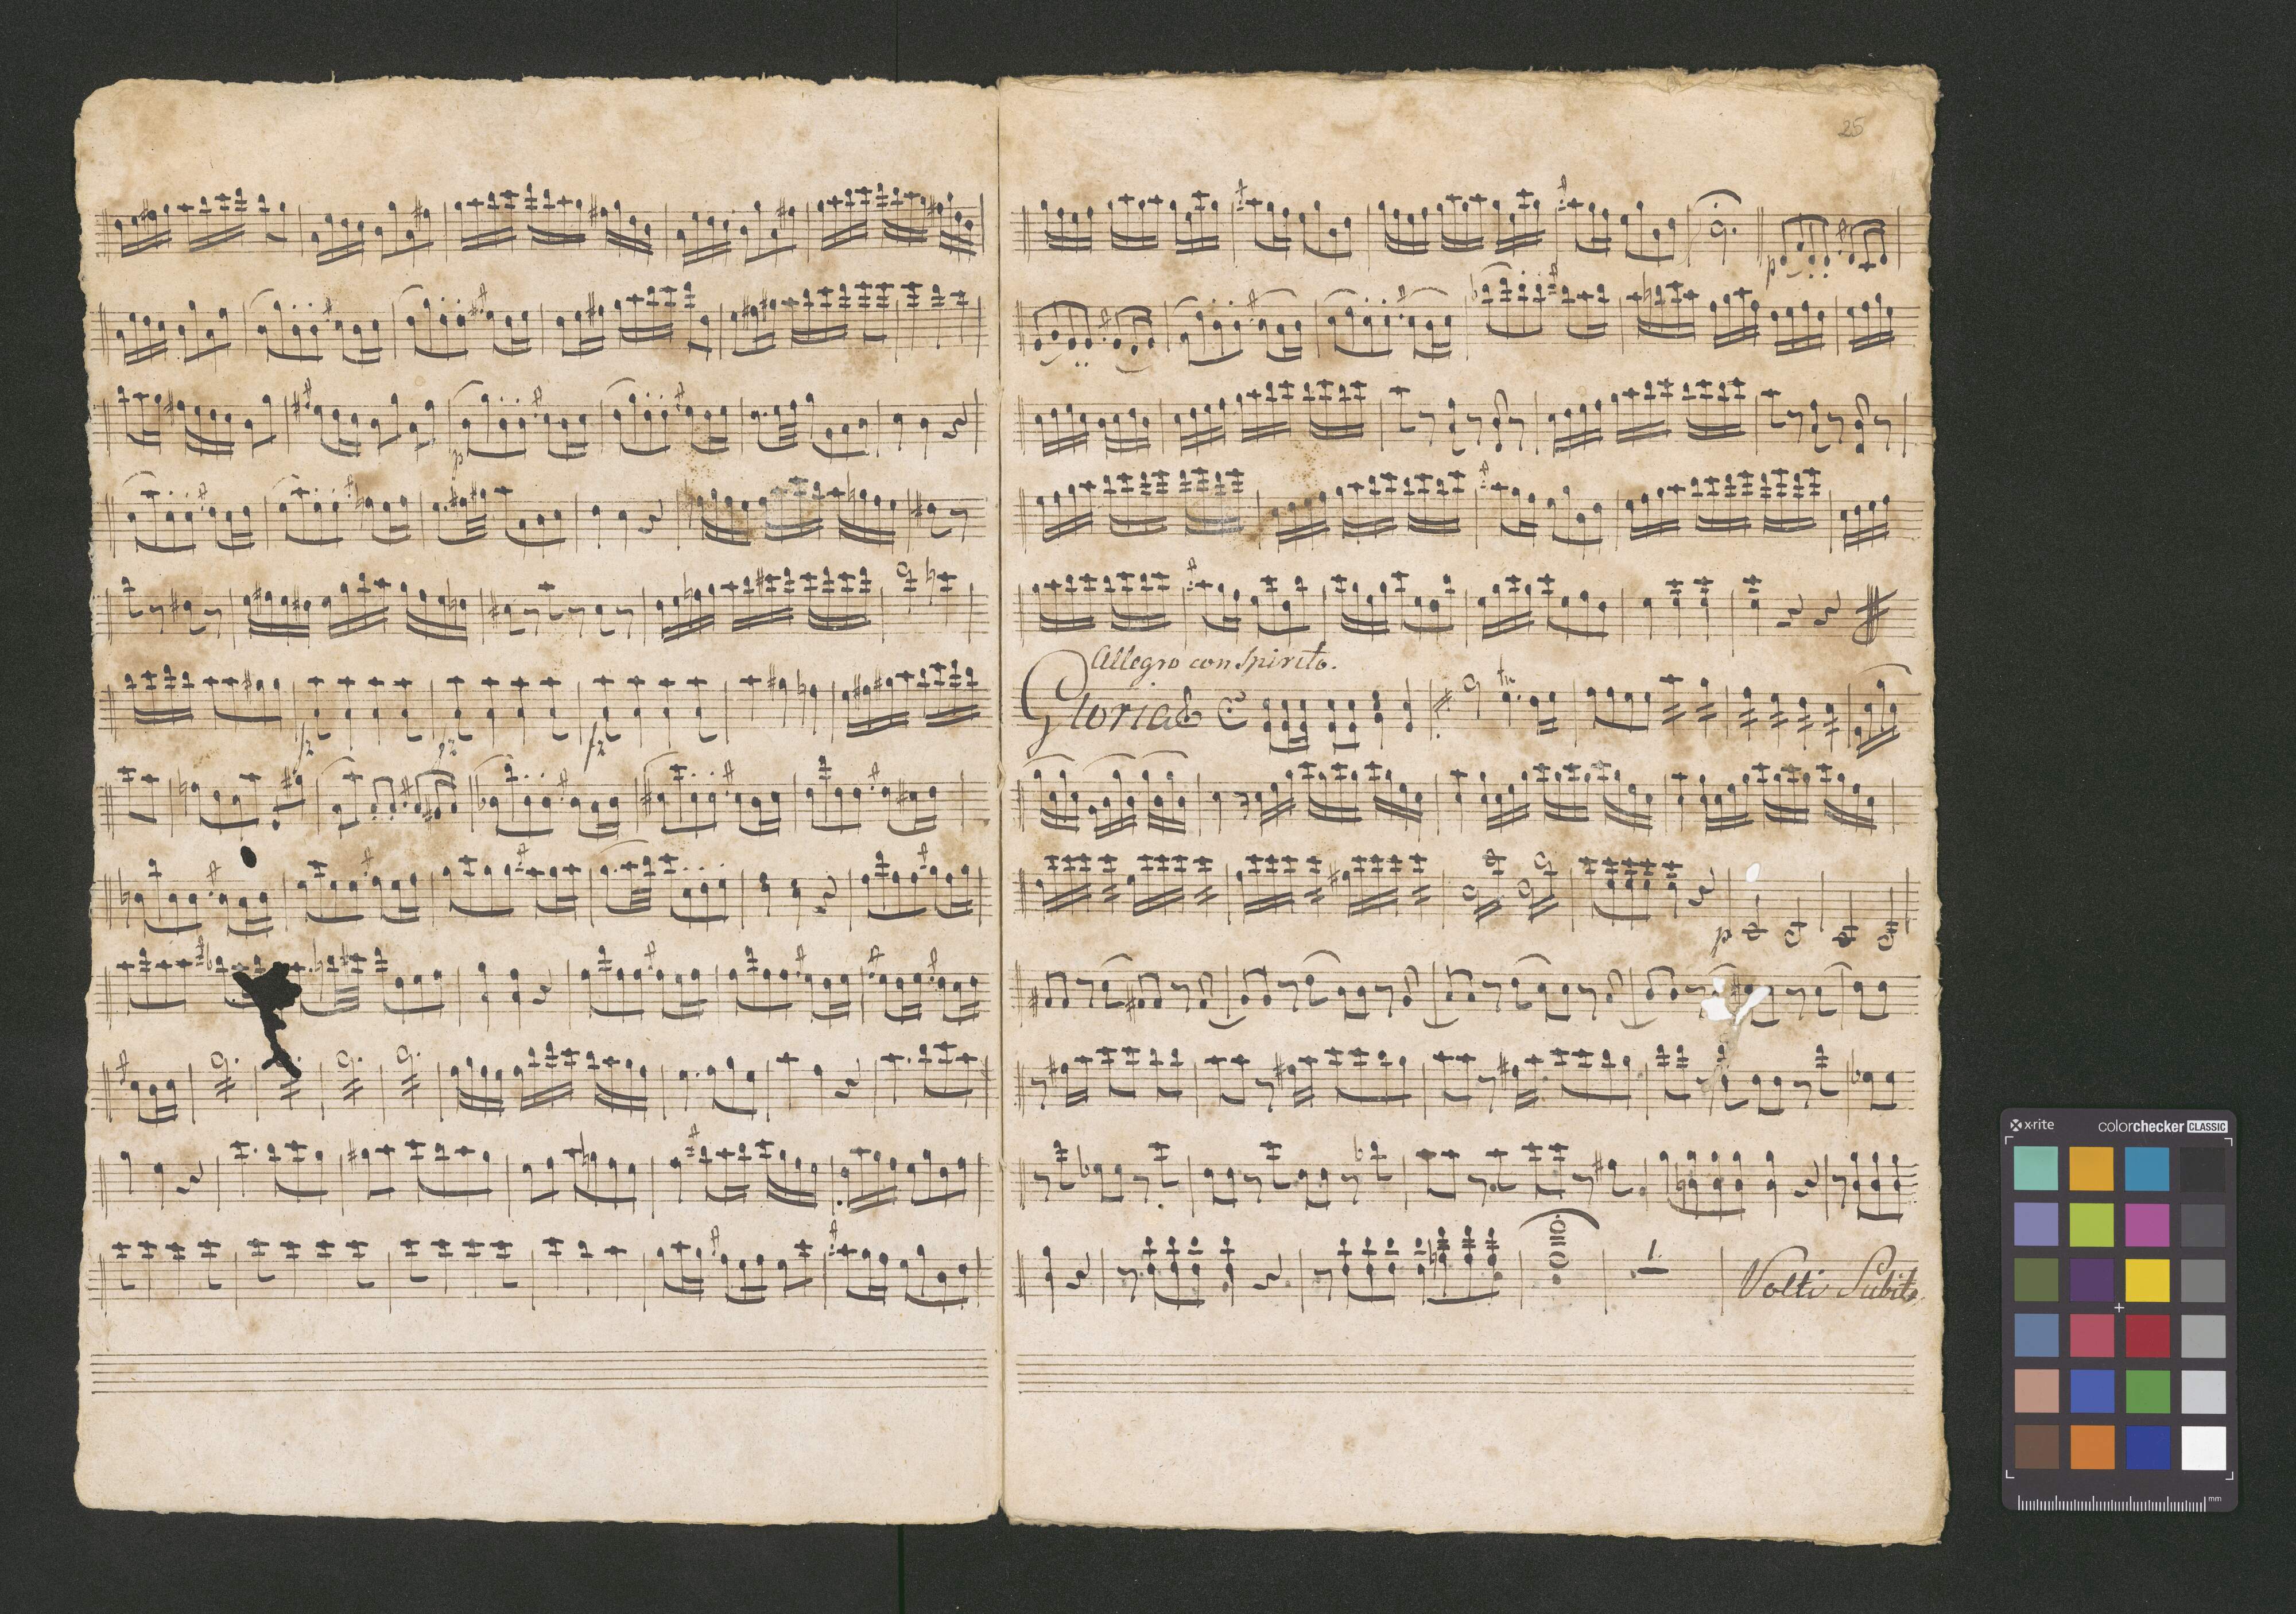 25
p
p
Allegro con Spirito.
Gloria
tr
fz
fz
fz
p
1.
Volti Subito
x-rite colorchecker CLASSIC
mm